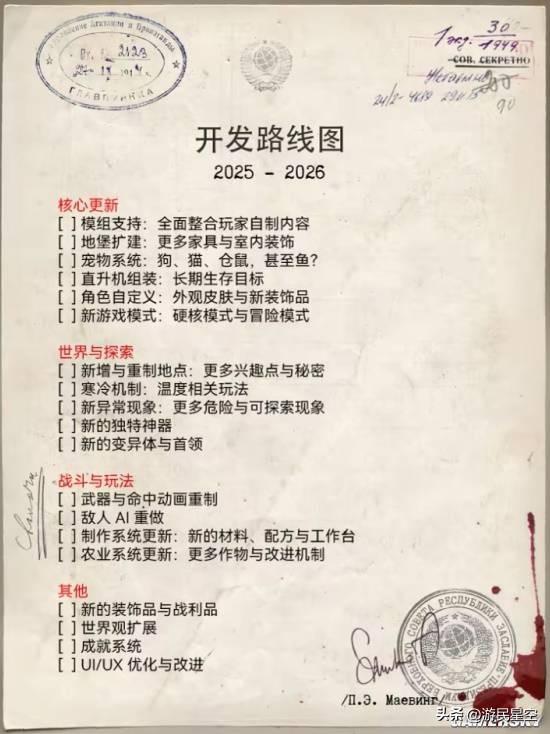 2123
ГЛАВПУРККА
30
1949.
СОВ. СЕКРЕТНО
开发路线图
2025 - 2026
核心更新
[ ] 模组支持：全面整合玩家自制内容
[ ] 地堡扩建：更多家具与室内装饰
[ ] 宠物系统：狗、猫、仓鼠，甚至鱼？
[ ] 直升机组装：长期生存目标
[ ] 角色自定义：外观皮肤与新装饰品
[ ] 新游戏模式：硬核模式与冒险模式
世界与探索
[ ] 新增与重制地点：更多兴趣点与秘密
[ ] 寒冷机制：温度相关玩法
[ ] 新异常现象：更多危险与可探索现象
[ ] 新的独特神器
[ ] 新的变异体与首领
战斗与玩法
[ ] 武器与命中动画重制
[ ] 敌人 AI 重做
[ ] 制作系统更新：新的材料、配方与工作台
[ ] 农业系统更新：更多作物与改进机制
其他
[ ] 新的装饰品与战利品
[ ] 世界观扩展
[ ] 成就系统
[ ] UI/UX 优化与改进
СОВЕТА РЕСПУБЛИКИ
/П.Э. Маевинг/
头条 @游民星空
GAMERSKY